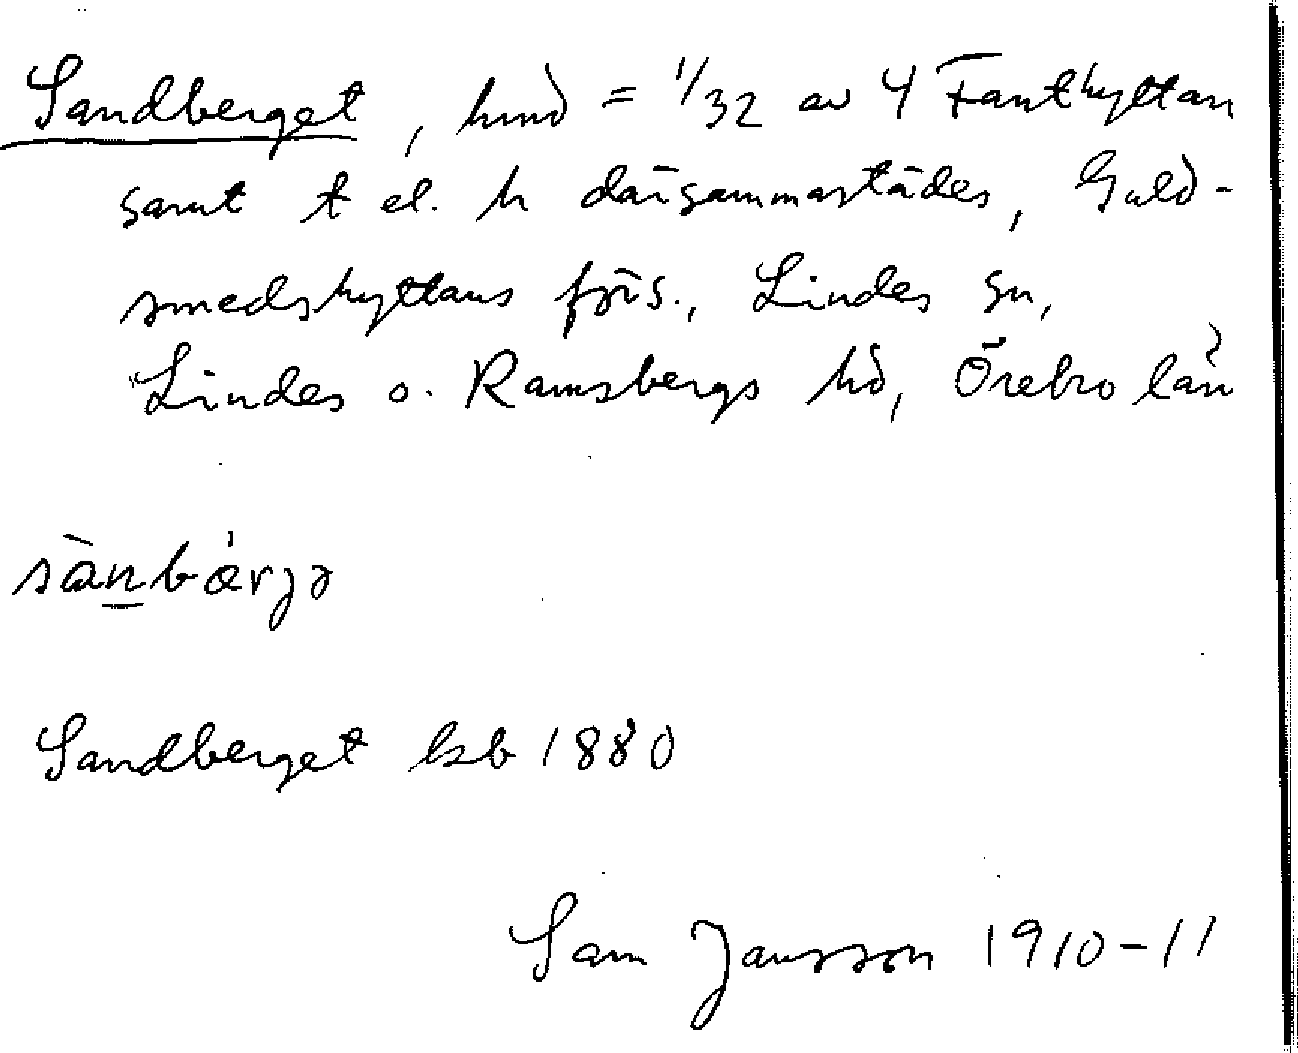 Sandberget, hmd = 1/32 av 4 Fanthyttan
samt t el. h därsammastädes, Guld-
smedshyttans förs., Lindes sn,
Lindes o. Ramsbergs hd, Örebro län
sànbárjə
Sandberget kb 1880
Sam Jansson 1910-11